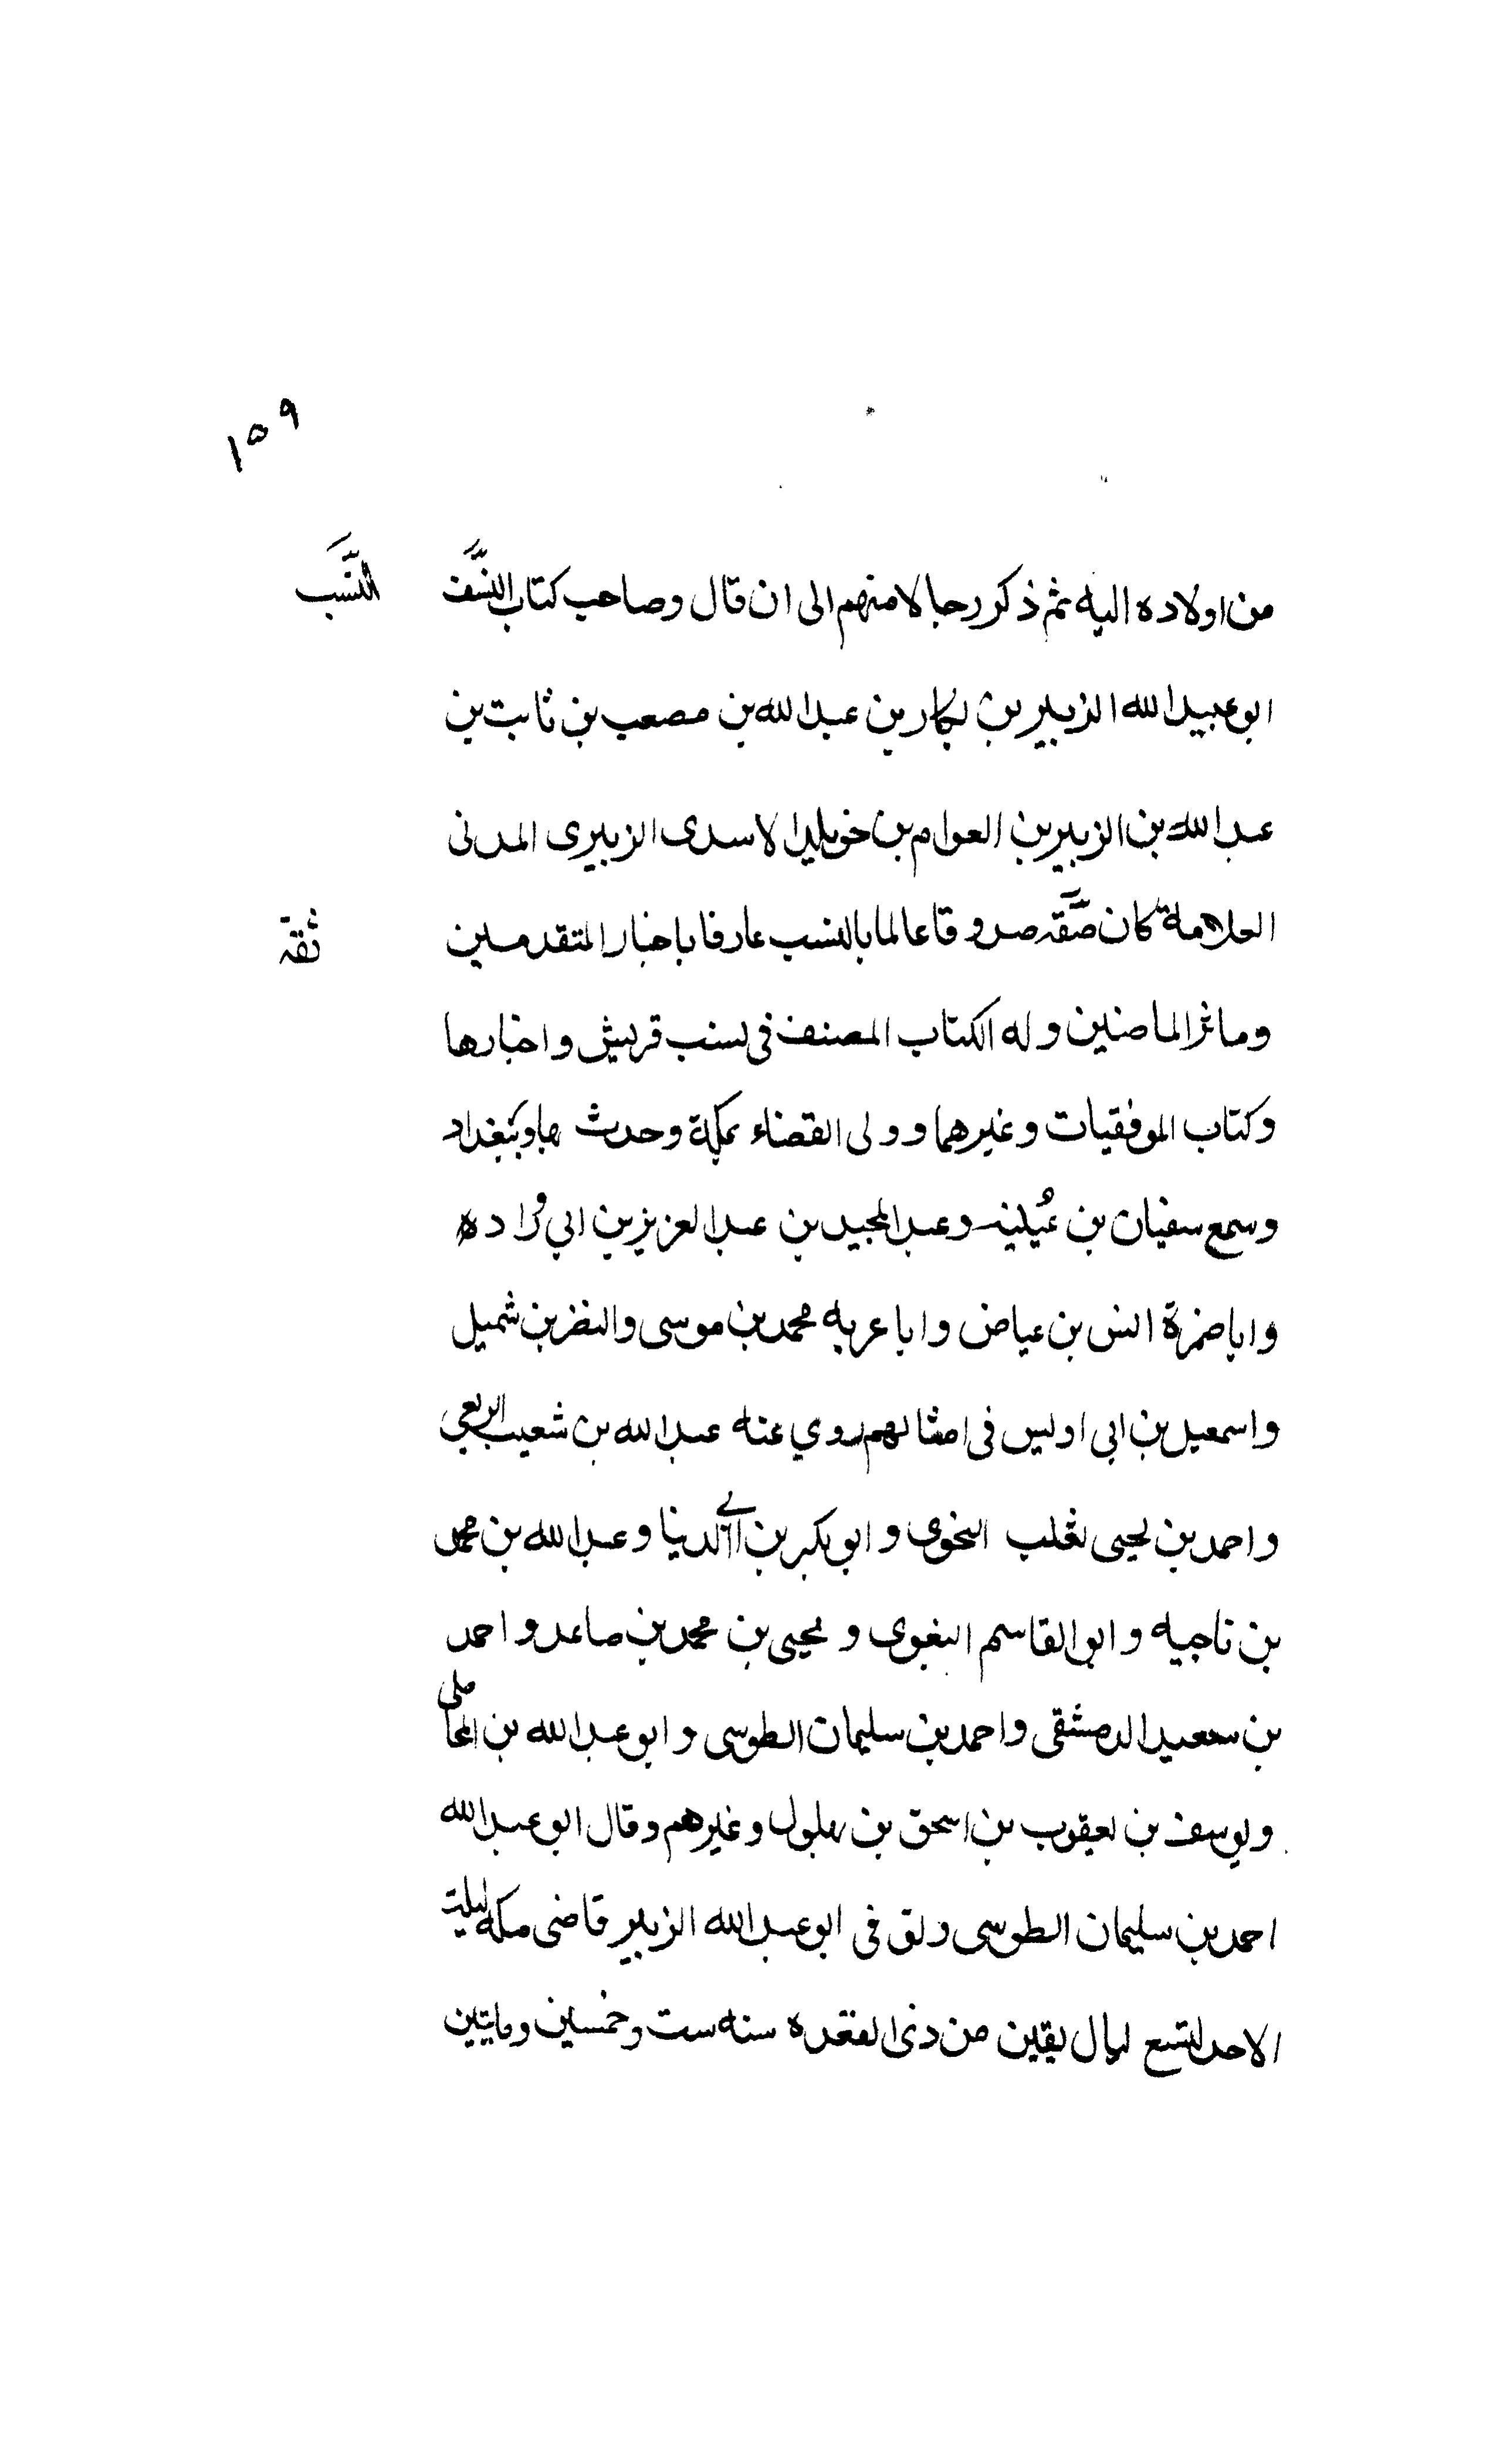 ١٥٩
من اولاده اليه ثم ذكر رجالا منهم الى ان قال وصاحب كتاب النسف
النسب
ابو عبيد الله الزبير بن بكار بن عبد الله بن مصعب بن ثابت بن
عبد الله بن الزبير بن العوام بن خويلد الاسدى الزبيرى المدنى
العلامة كان صقه صدوقا عالما بالنسب عارفا باخبار المتقدمين
ثقة
وماثر الماضين وله الكتاب المصنف فى نسب قريش واخبارها
وكتاب الموفقيات وغيرهما وولى القضاء بمكة وحدث بها وببغداد
وسمع سفيان بن عُيينه وعبد المجيد بن عبد العزيز بن ابي
واباضمرة انس بن عياض وابا عربه محمد بن موسى والنضر بن شميل
واسمعيل بن ابى اويس فى امثالهم روي عنه عبد الله بن شعيب الربعي
واحمد بن يحيى ثعلب النحوى وابو بكر بن ابي الدنيا وعبد الله بن محمد
بن ناجيه وابو القاسم البغوى ويحيى بن محمد بن صاعد واحمد
بن سعيد الدمشقى واحمد بن سليمان الطوسى وابو عبد الله بن المحاملى
ويوسف بن يعقوب بن اسحق بن بهلول وغيرهم وقال ابو عبد الله
احمد بن سليمان الطوسى ولق فى ابو عبد الله الزبير قاضى مكه ليلة
الاحد لتسع ليال بقين من ذى القعده سنه ست وخمسين ومايتين